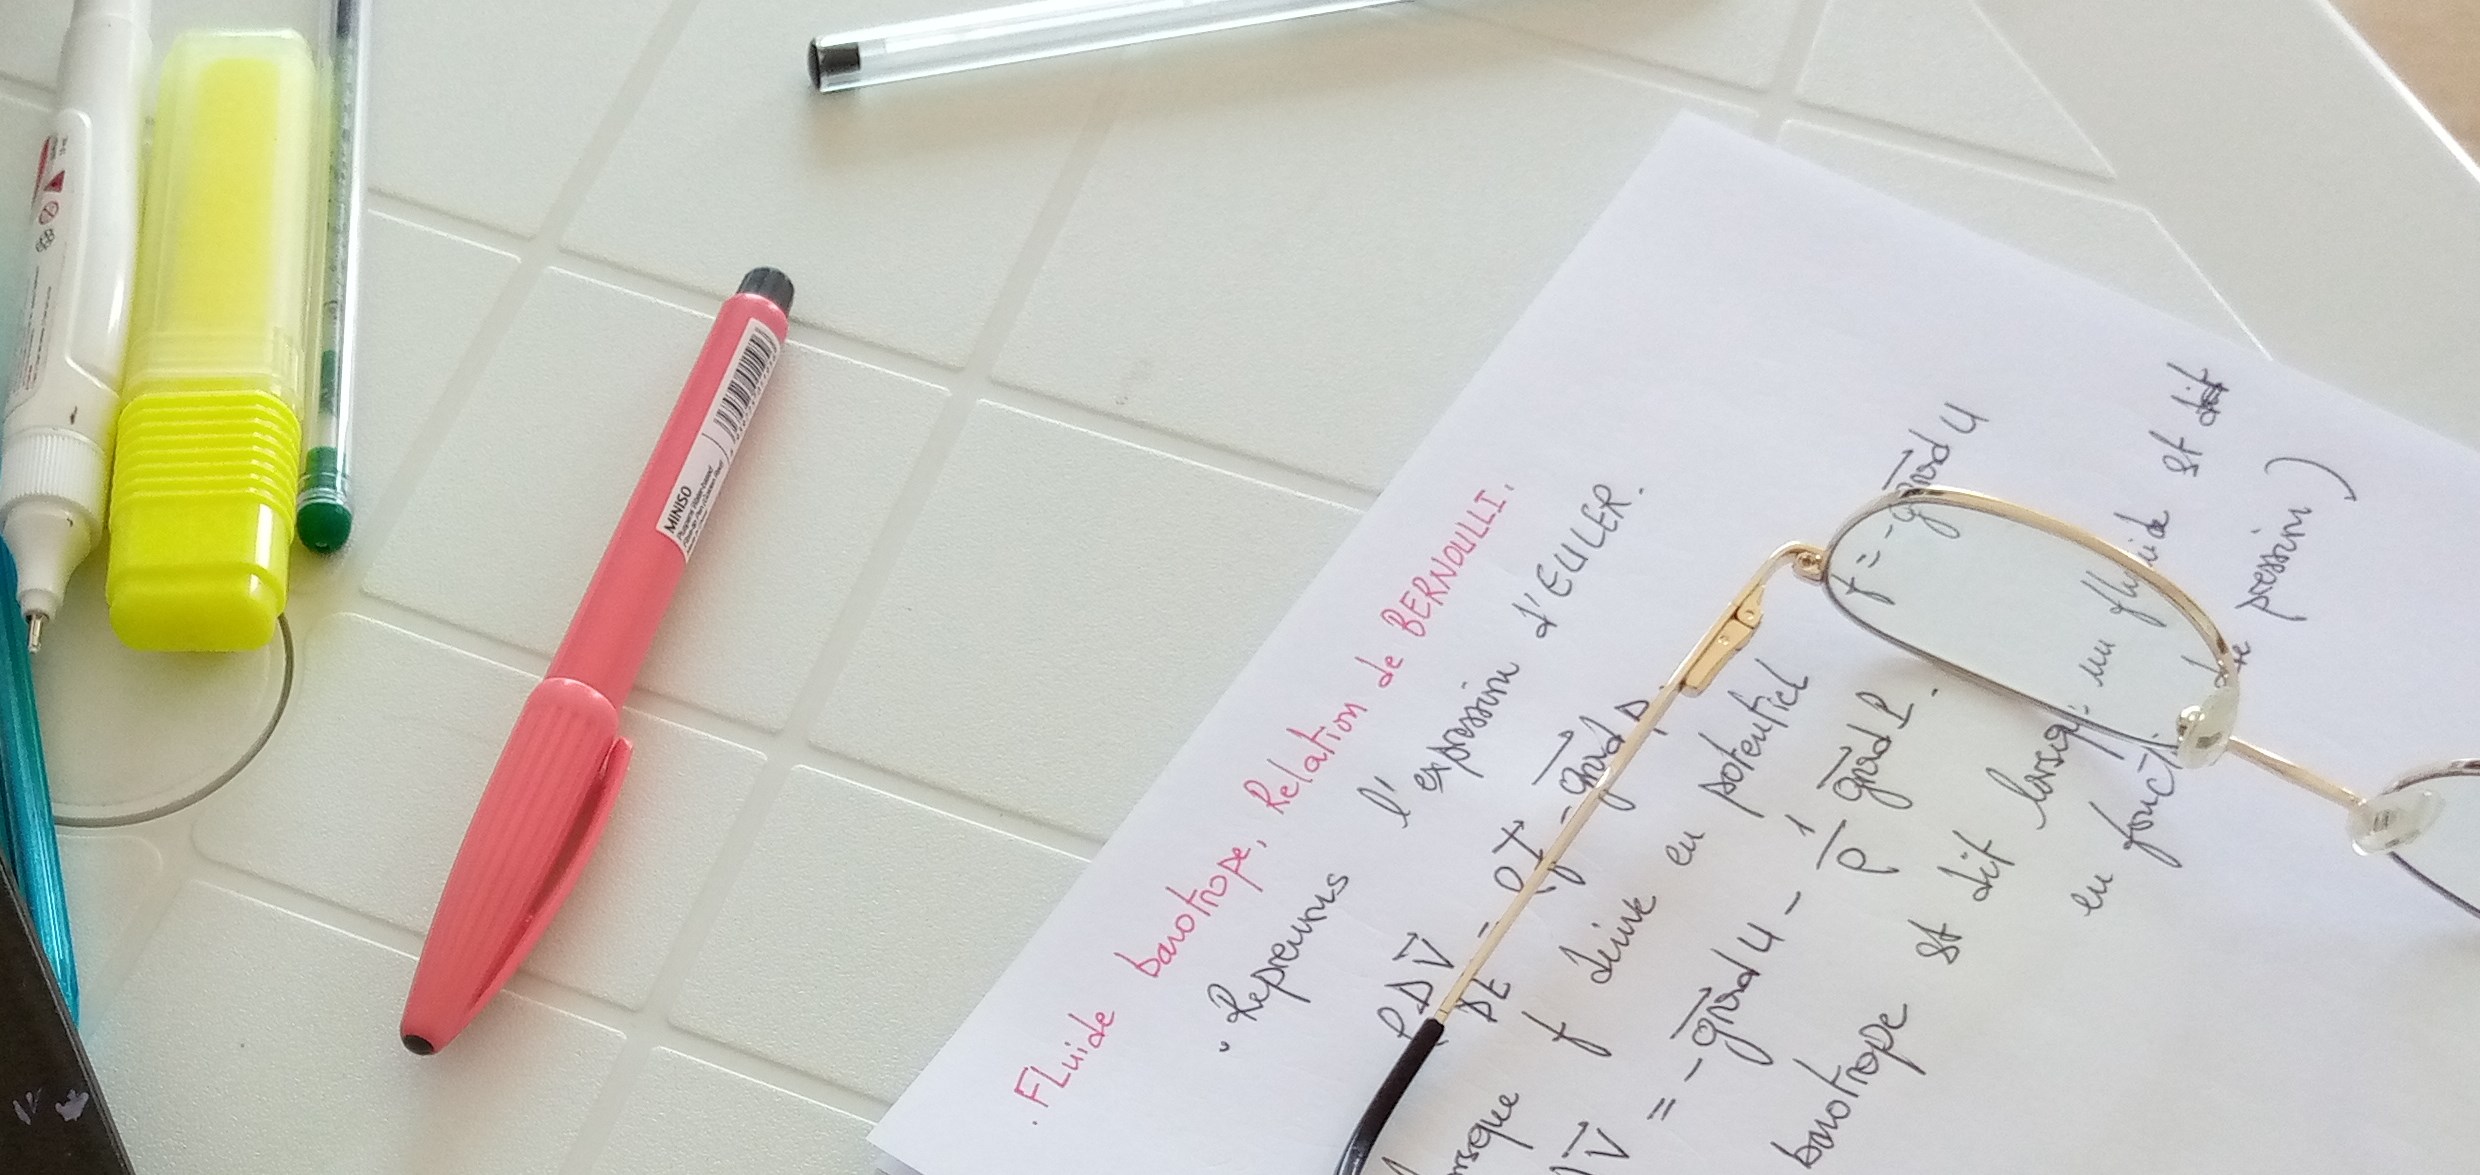 MINISO
. FLuide barotrope, Relation de BERNOULLI.
. Reprenons l'expression d'EULER.
ρ D\vec{V} / Dt = ρ\vec{f} - \vec{grad} P
f derive en potentiel f = - \vec{grad} U
\vec{V} = - \vec{grad} U - 1/ρ \vec{grad} P.
barotrope st dit lorsq: un fluide st dit
en fonct pression)